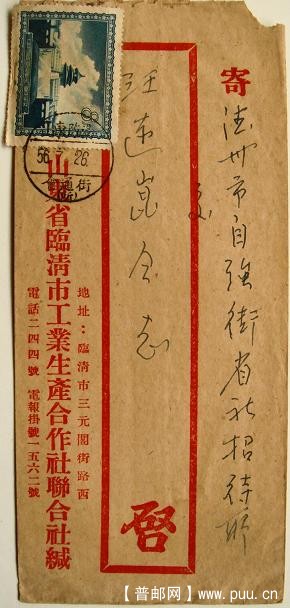 寄
德州市自強街省社招待所
交
汪連崑仝志
啓
山東省臨清市工業生產合作社聯合社緘
地址：臨清市三元閣街路西
電話二四四號 電報掛號一五六二號
56. 26
【普邮网】www.puu.cn